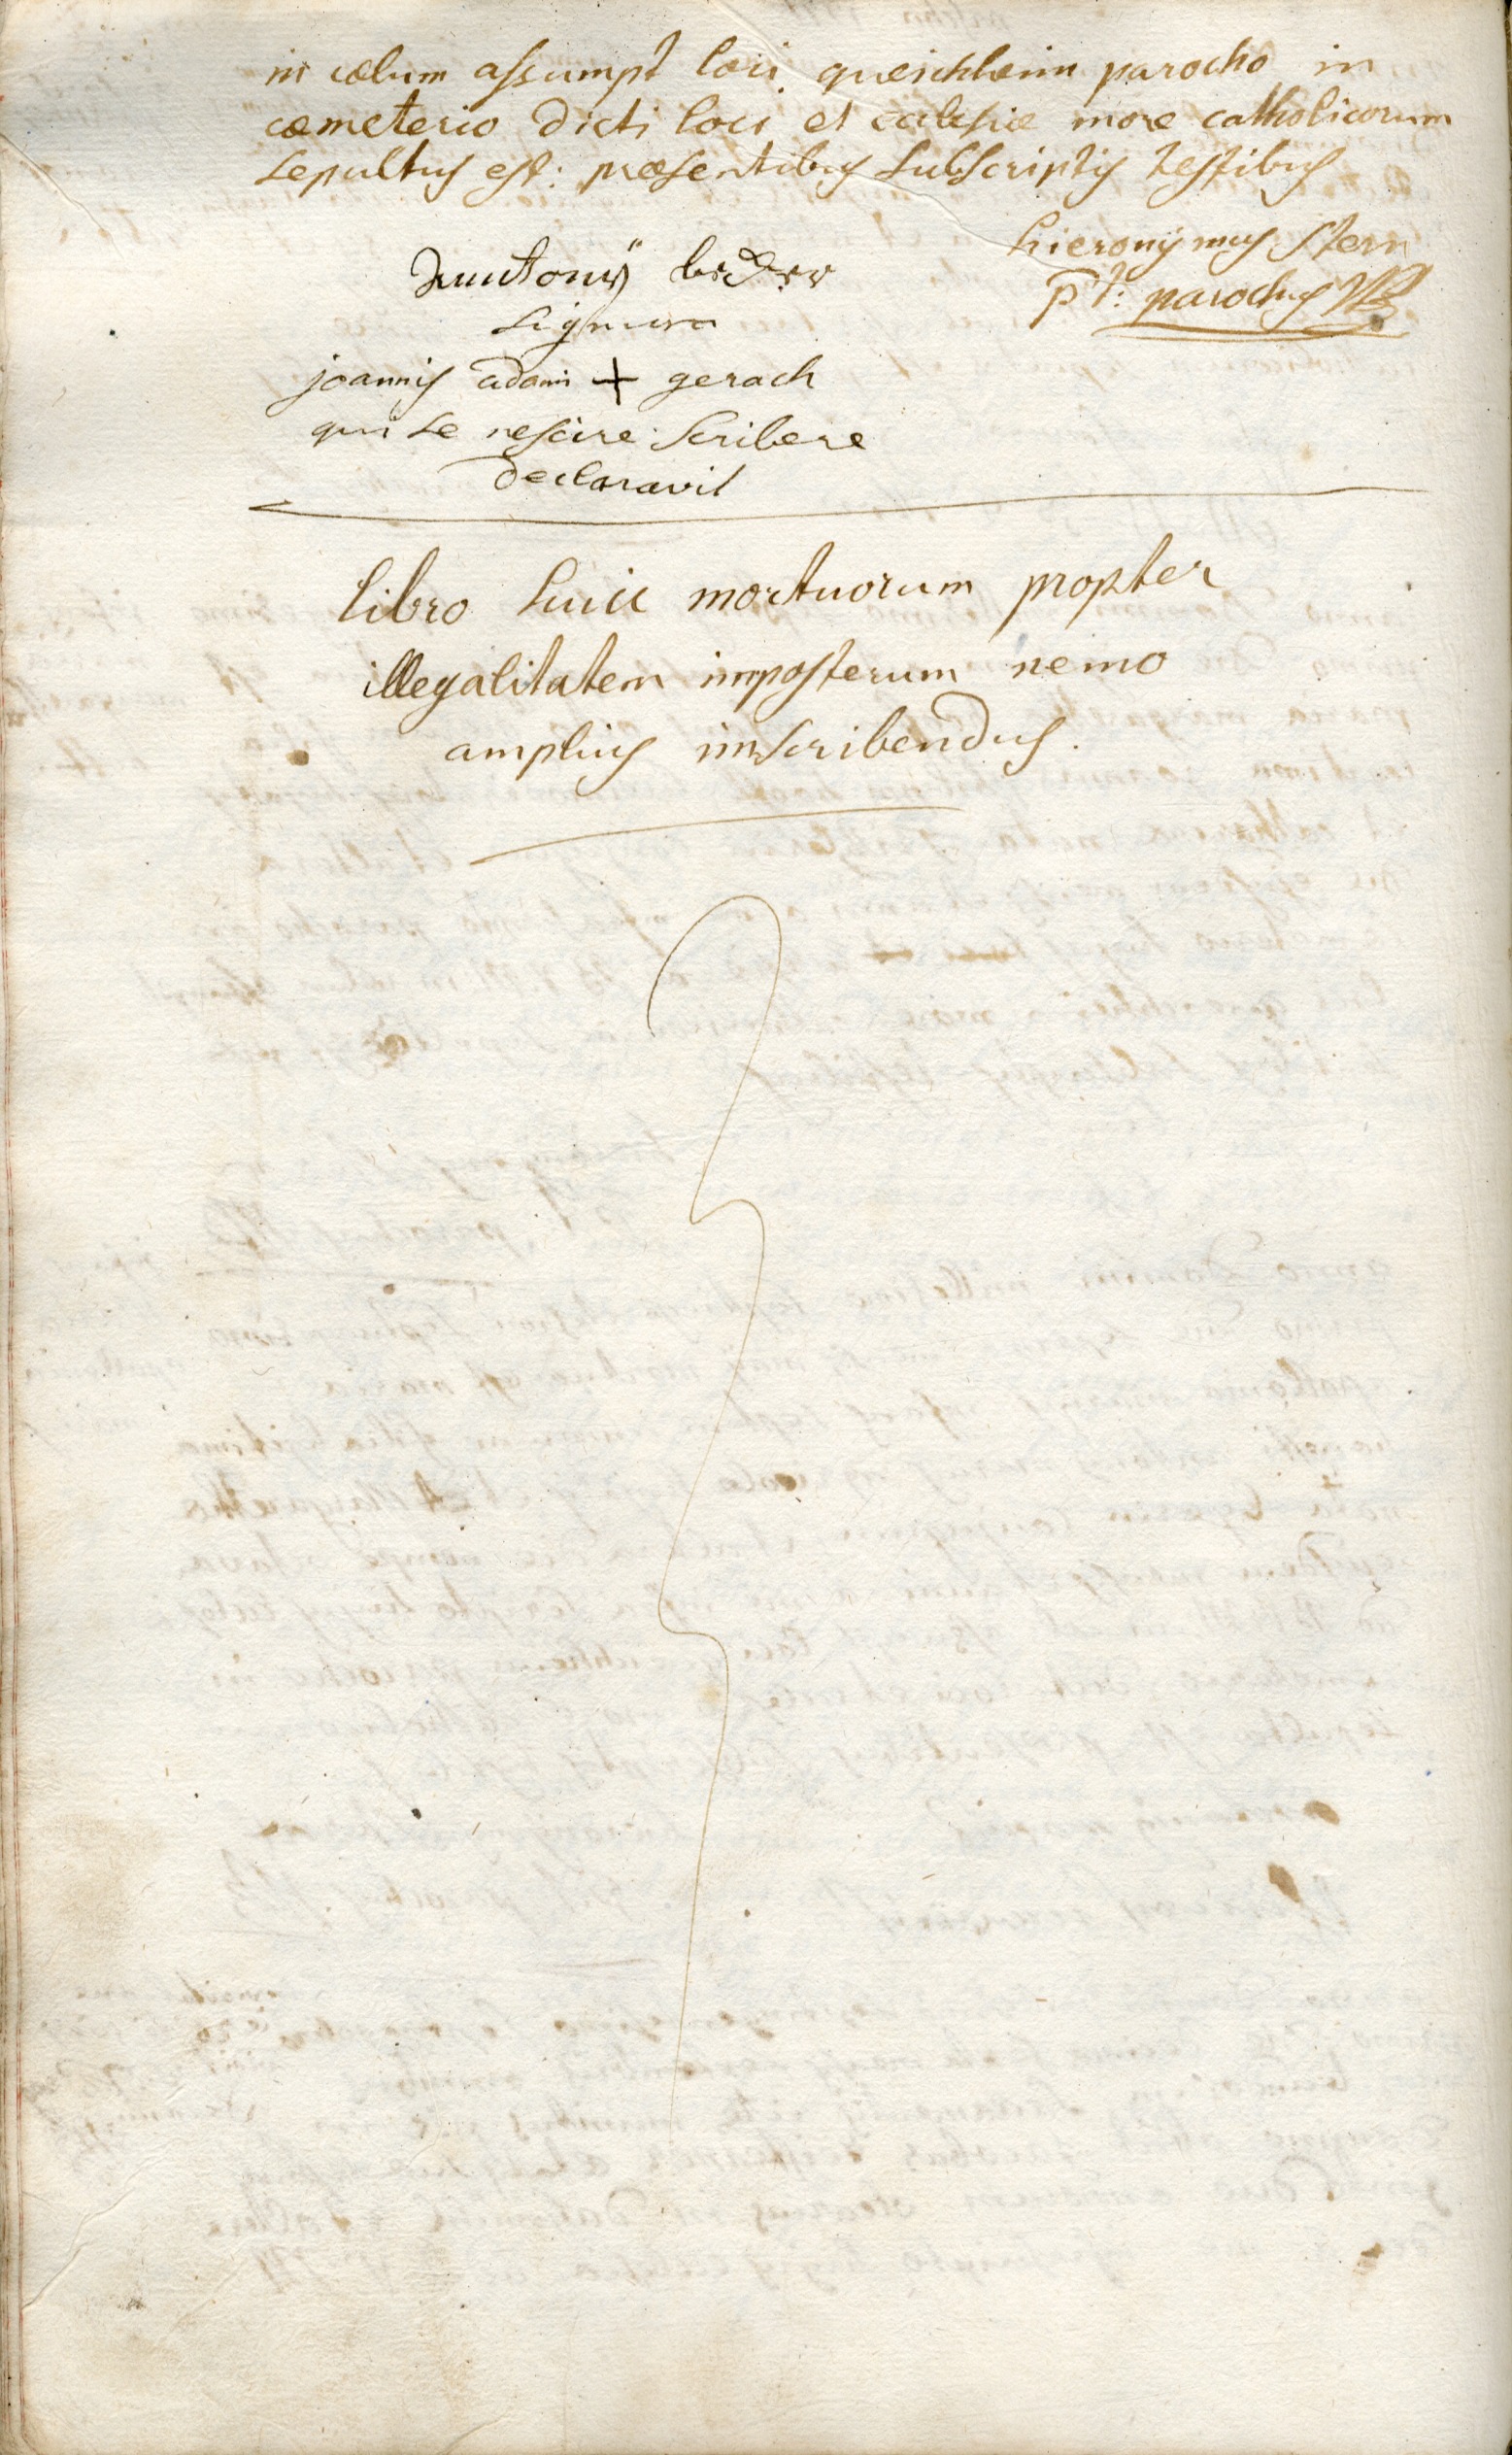 in cœlum assumpt loci queichheim parocho in
cœmeterio dicti loci et eclesiæ more catholicorum
sepultus est: præsentibus subscriptis testibus
hieronymus stern
p t: parochus
becker
signum
joannis adami + gerach
qui se nescire scribere
declaravit
libro huic mortuorum propter
illegalitatem imposterum nemo
amplius inscribendus.